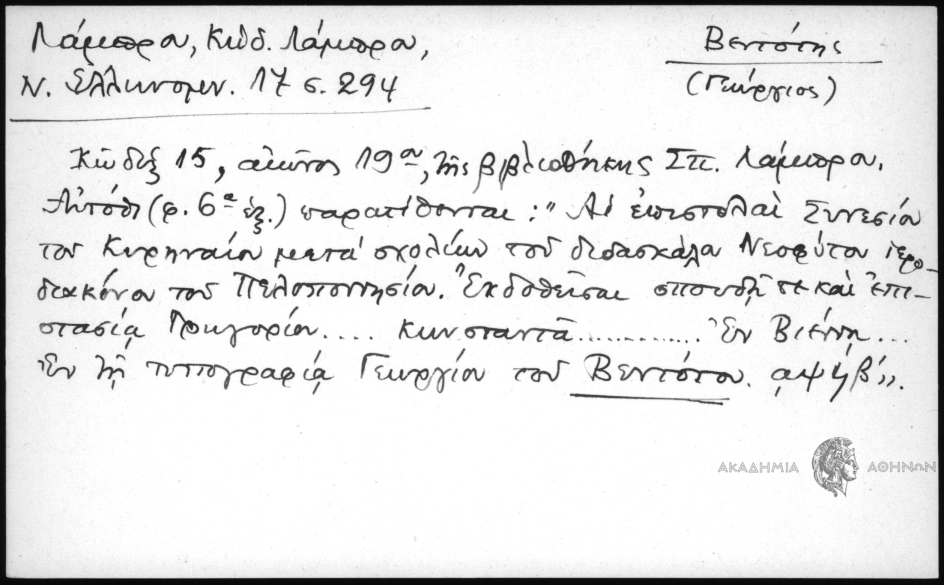 Λάμπρου, Κώδ. Λάμπρου,
Ν. Ἑλληνομν. 17 σ. 294
Βεντότης
(Γεώργιος)
Κῶδιξ 15, αἰῶνος 19ου, τῆς βιβλιοθήκης Σπ. Λάμπρου.
Αὐτόθι (φ. 6α ἑξ.) παρατίθονται: "Αἱ ἐπιστολαὶ Συνεσίου
τοῦ Κυρηναίου μετὰ σχολίων τοῦ διδασκάλου Νεοφύτου ἱερο-
διακόνου τοῦ Πελοποννησίου. Ἐκδοθεῖσαι σπουδῇ τε καὶ ἐπι-
στασίᾳ Γρηγορίου.... Κωνσταντᾶ............ Ἐν Βιέννῃ...
Ἐν τῇ τυπογραφίᾳ Γεωργίου τοῦ Βεντότου. αψϟβ'".
ΑΚΑΔΗΜΙΑ ΑΘΗΝΩΝ